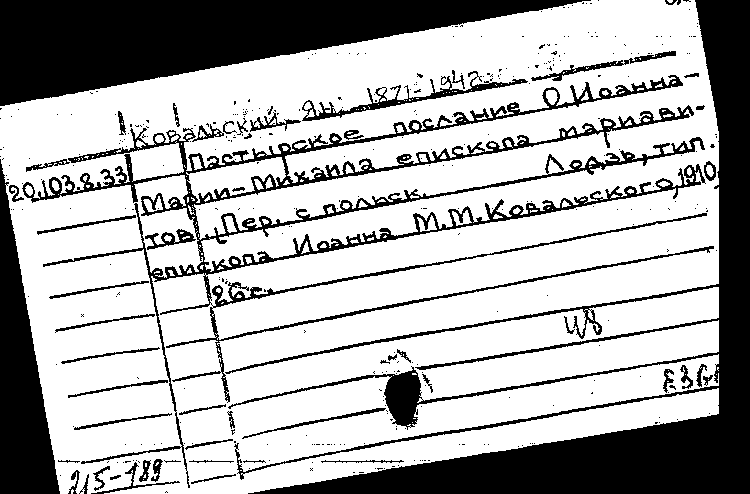 Ковальский, Ян, 1871-1942
20.103.8.33
Пастырское послание О.Иоанна-
Марии-Михаила епископа мариави-
тов. [Пер. с польск. Лодзь, тип.
епископа Иоанна М.М.Ковальского, 1910.
26с.
чз
215-189